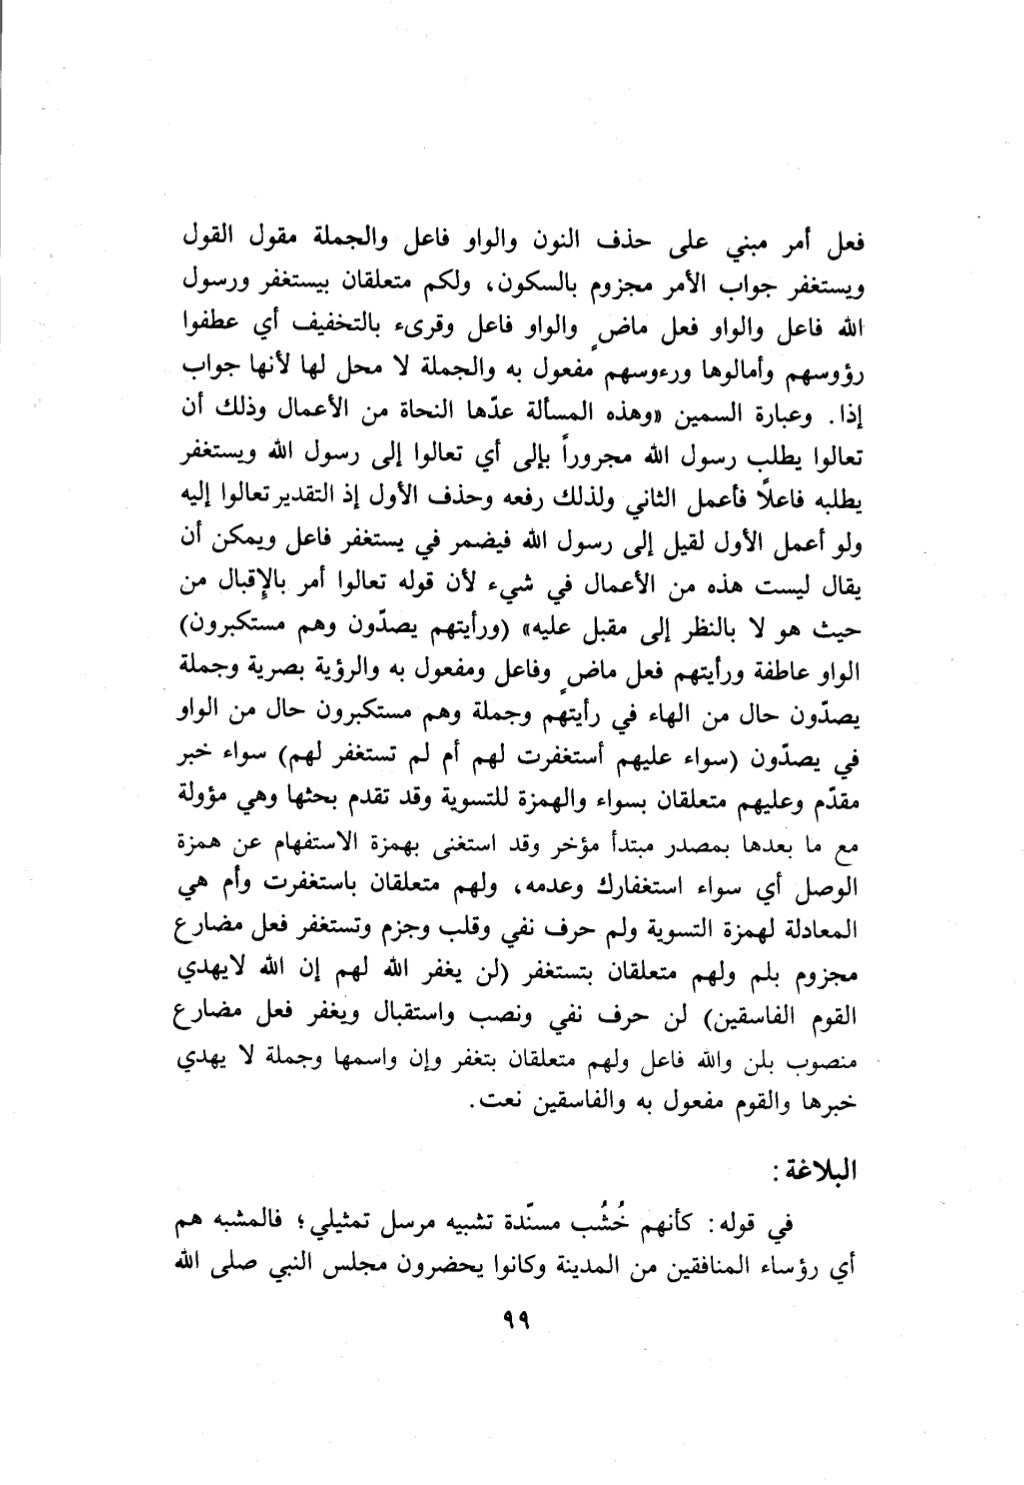 فعل أمر مبني على حذف النون والواو فاعل والجملة مقول القول
ويستغفر جواب الأمر مجزوم بالسكون، ولكم متعلقان بيستغفر ورسول
الله فاعل والواو فعل ماضٍ والواو فاعل وقرىء بالتخفيف أي عطفوا
رؤوسهم وأمالوها ورءوسهم مفعول به والجملة لا محل لها لأنها جواب
إذا. وعبارة السمين «وهذه المسألة عدّها النحاة من الأعمال وذلك أن
تعالوا يطلب رسول الله مجروراً بإلى أي تعالوا إلى رسول الله ويستغفر
يطلبه فاعلًا فأعمل الثاني ولذلك رفعه وحذف الأول إذ التقدير تعالوا إليه
ولو أعمل الأول لقيل إلى رسول الله فيضمر في يستغفر فاعل ويمكن أن
يقال ليست هذه من الأعمال في شيء لأن قوله تعالوا أمر بالإِقبال من
حيث هو لا بالنظر إلى مقبل عليه» (ورأيتهم يصدّون وهم مستكبرون)
الواو عاطفة ورأيتهم فعل ماضٍ وفاعل ومفعول به والرؤية بصرية وجملة
يصدّون حال من الهاء في رأيتهم وجملة وهم مستكبرون حال من الواو
في يصدّون (سواء عليهم أستغفرت لهم أم لم تستغفر لهم) سواء خبر
مقدّم وعليهم متعلقان بسواء والهمزة للتسوية وقد تقدم بحثها وهي مؤولة
مع ما بعدها بمصدر مبتدأ مؤخر وقد استغنى بهمزة الاستفهام عن همزة
الوصل أي سواء استغفارك وعدمه، ولهم متعلقان باستغفرت وأم هي
المعادلة لهمزة التسوية ولم حرف نفي وقلب وجزم وتستغفر فعل مضارع
مجزوم بلم ولهم متعلقان بتستغفر (لن يغفر الله لهم إن الله لايهدي
القوم الفاسقين) لن حرف نفي ونصب واستقبال ويغفر فعل مضارع
منصوب بلن والله فاعل ولهم متعلقان بتغفر وإن واسمها وجملة لا يهدي
خبرها والقوم مفعول به والفاسقين نعت.
البلاغة:
في قوله: كأنهم خُشُب مسنّدة تشبيه مرسل تمثيلي؛ فالمشبه هم
أي رؤساء المنافقين من المدينة وكانوا يحضرون مجلس النبي صلى الله
٩٩